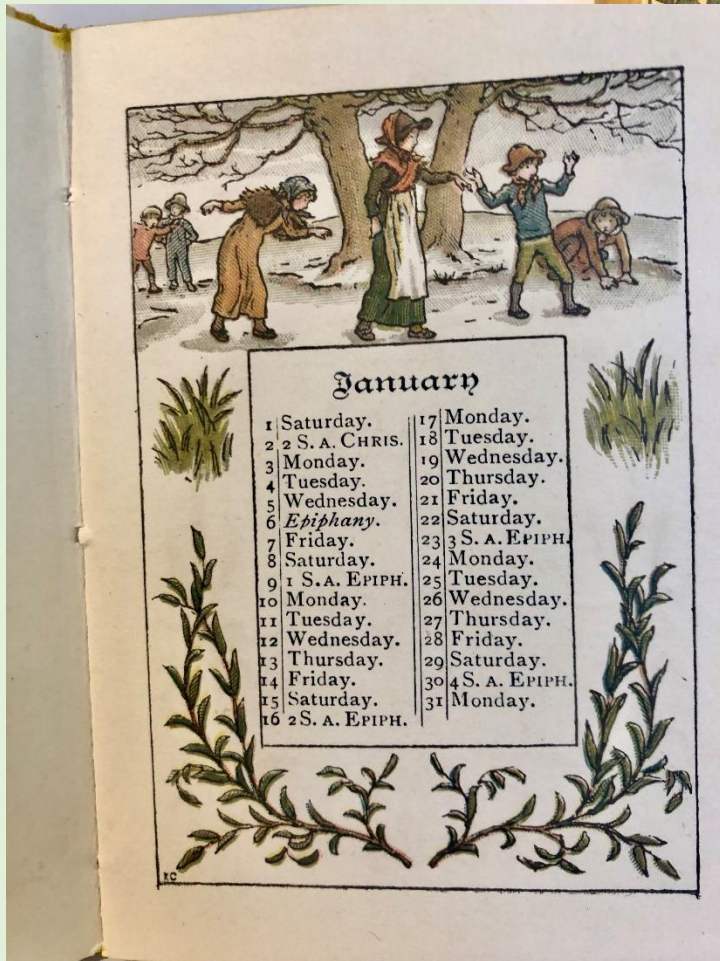 January
1 Saturday.
2 2 S. A. CHRIS.
3 Monday.
4 Tuesday.
5 Wednesday.
6 Epiphany.
7 Friday.
8 Saturday.
9 1 S. A. EPIPH.
10 Monday.
11 Tuesday.
12 Wednesday.
13 Thursday.
14 Friday.
15 Saturday.
16 2 S. A. EPIPH.
17 Monday.
18 Tuesday.
19 Wednesday.
20 Thursday.
21 Friday.
22 Saturday.
23 3 S. A. EPIPH.
24 Monday.
25 Tuesday.
26 Wednesday.
27 Thursday.
28 Friday.
29 Saturday.
30 4 S. A. EPIPH.
31 Monday.
KG